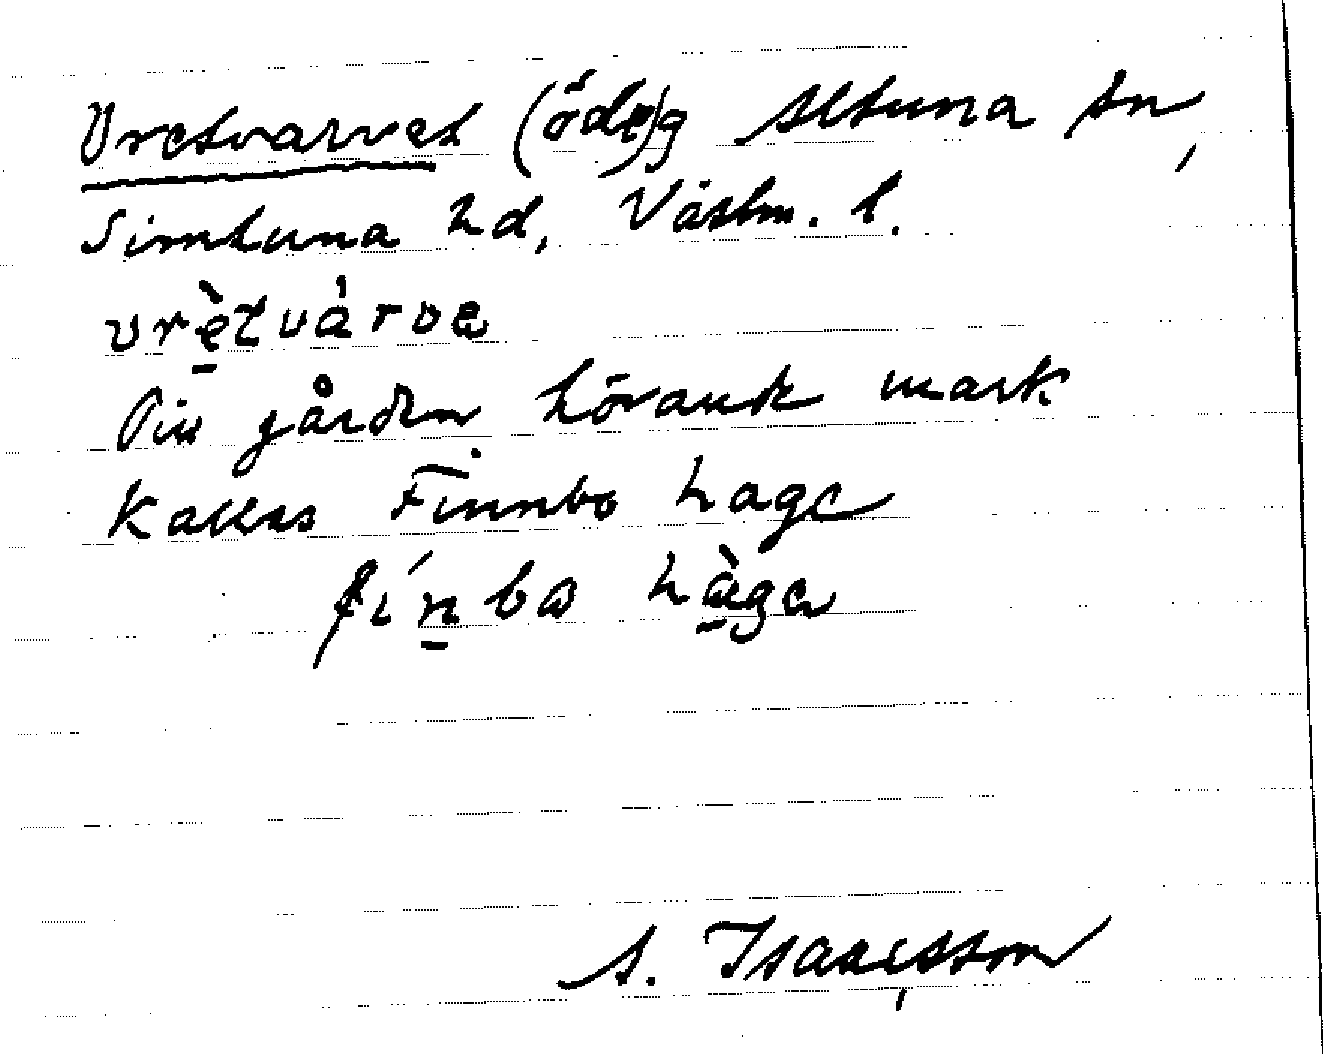 Vretvarvet (öde)g Altuna sn,
Simtuna hd, Västm. l.
vrètvárve
Till gården hörande mark
kallas Finnbo hage
fínbo hàga
A. Isacsson